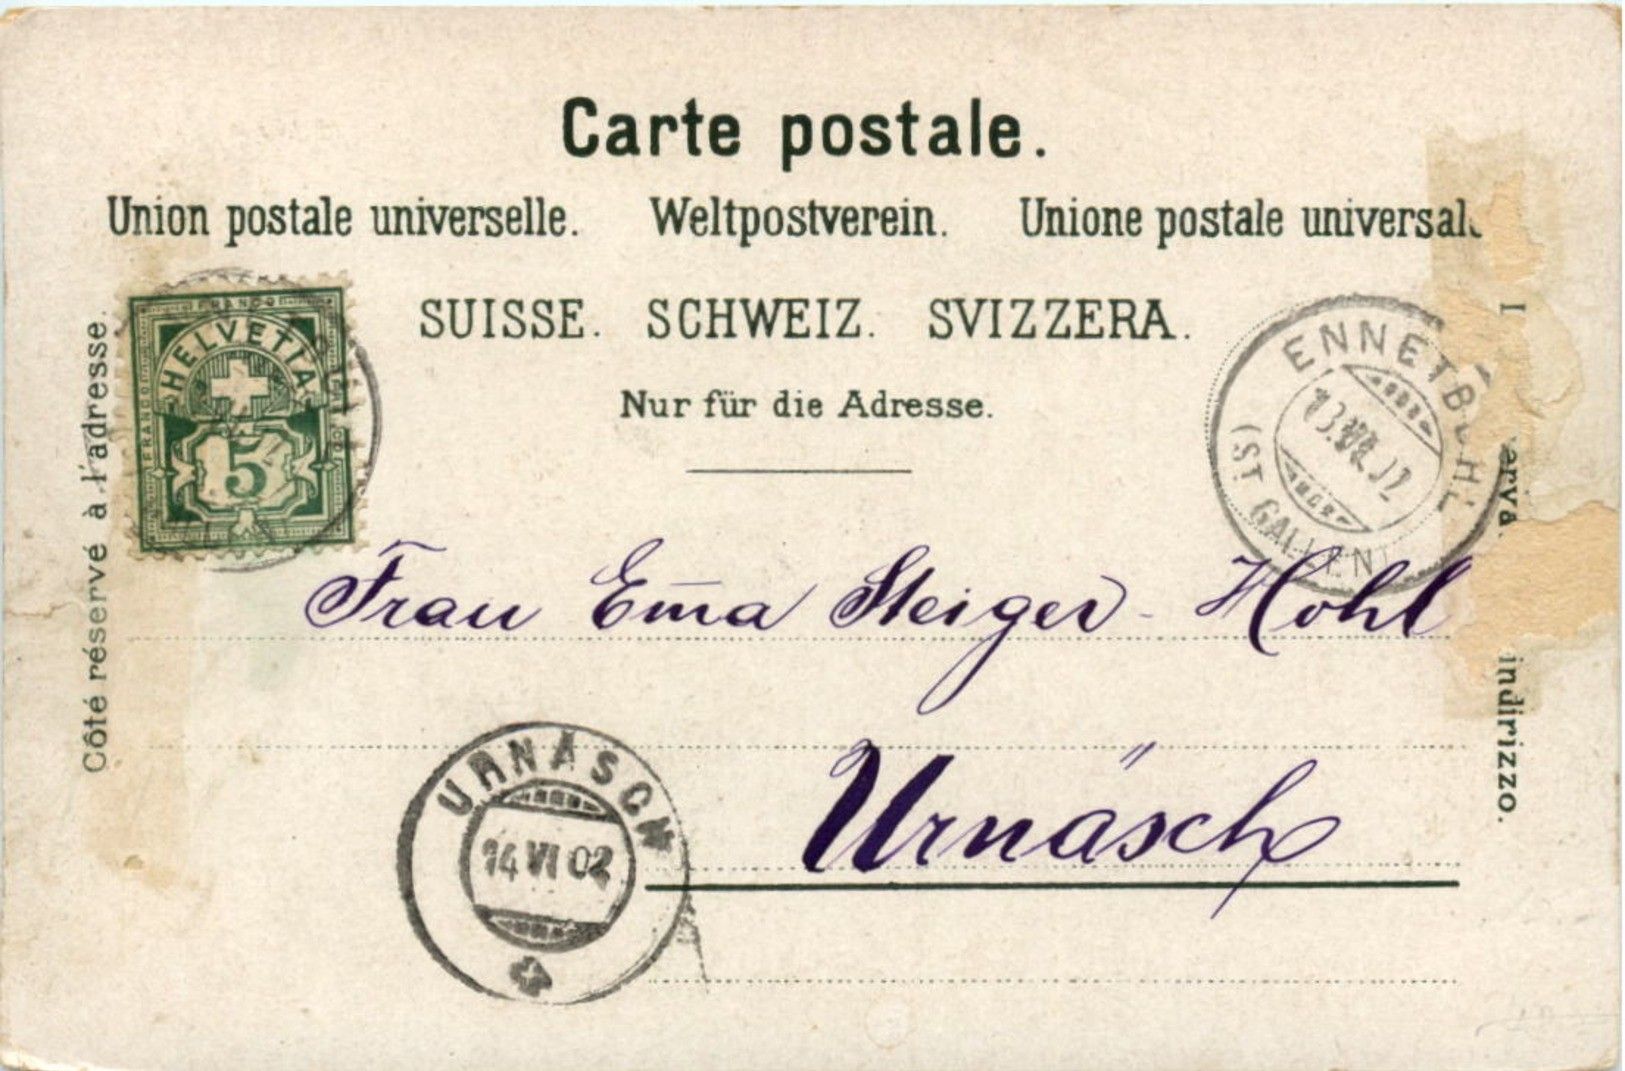 Carte postale.
Union postale universelle. Weltpostverein. Unione postale universal
SUISSE. SCHWEIZ. SVIZZERA.
Nur für die Adresse.
Côté réservé à l'adresse.
FRANCO
HELVETIA
FRANCO
5
ENNETBÜHL
(ST GALLEN)
Frau Em̅a Steiger-Hohl
Urnäsch
URNÄSCH
14 VI 02
indirizzo.